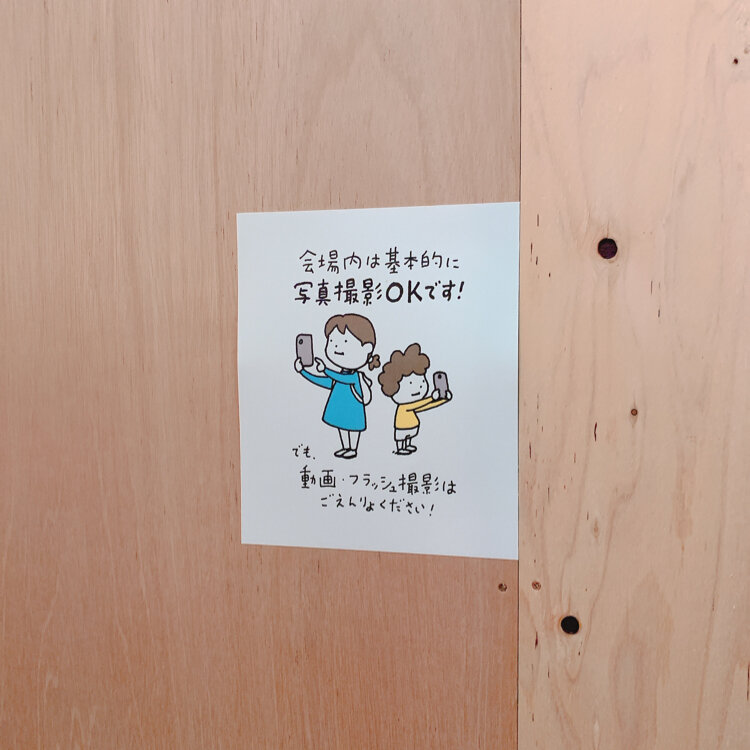 会場内は基本的に
写真撮影OKです!
でも、
動画・フラッシュ撮影は
ごえんりょください!